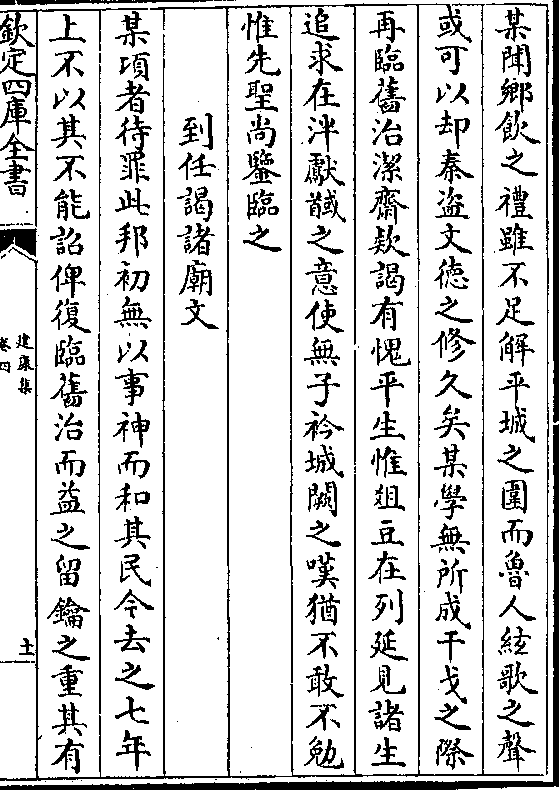 某聞鄉飲之禮雖不足解平城之圍而魯人絃歌之聲
或可以却秦盗文德之修久矣某學無所成干戈之際
再臨舊治潔齋欵謁有愧平生惟俎豆在列延見諸生
追求在泮獻馘之意使無子衿城闕之嘆猶不敢不勉
惟先聖尚鑒臨之
到任謁諸廟文
某項者待罪此邦初無以事神而和其民今去之七年
上不以其不能詔俾復臨舊治而益之留鑰之重其有
欽定四庫全書
建康集
卷四
土